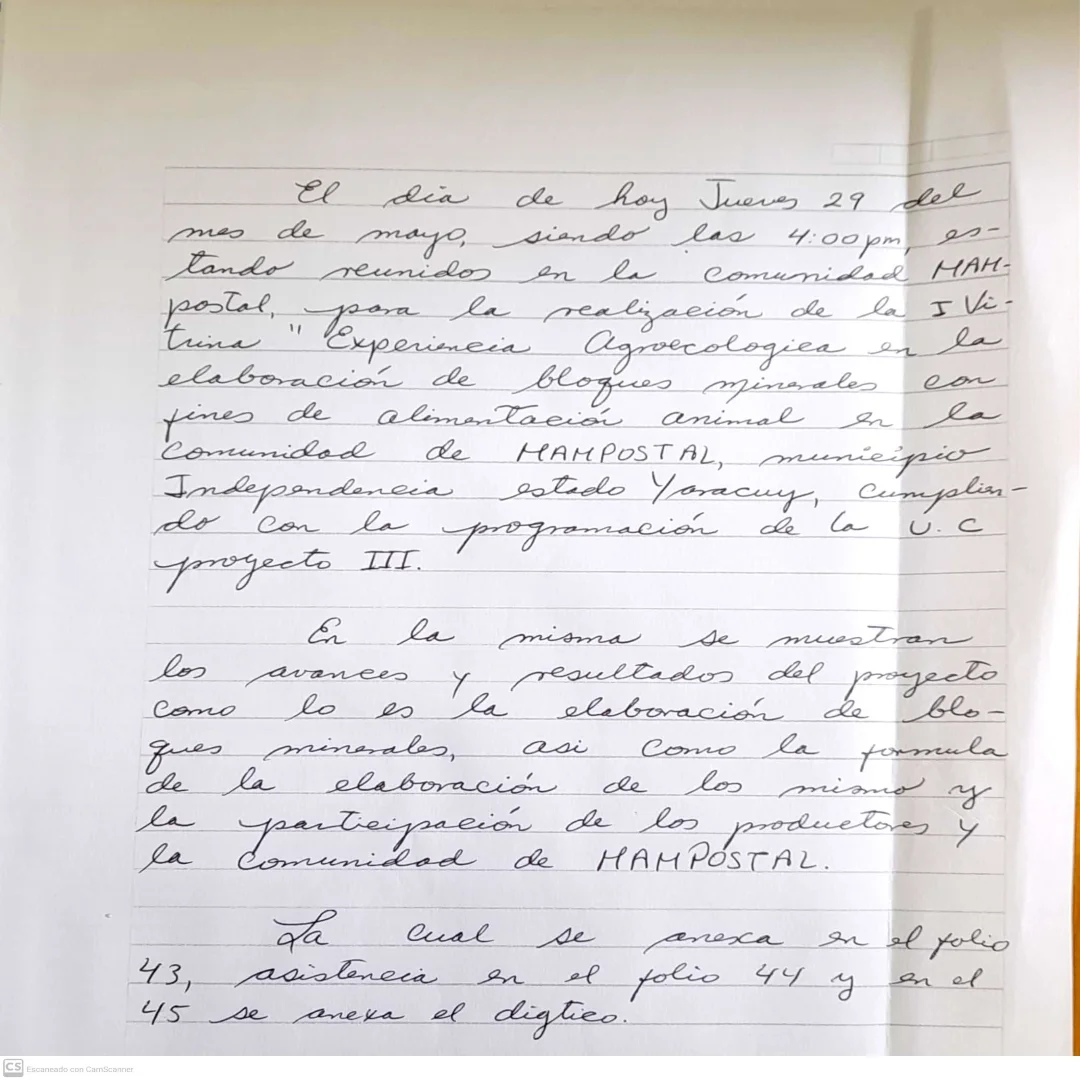 El dia de hoy Jueves 29 del
mes de mayo, siendo las 4:00pm, es-
tando reunidos en la comunidad MAM-
postal, para la realización de la I Vi-
trina "Experiencia Agroecologica en la
elaboración de bloques minerales con
fines de alimentación animal en la
comunidad de MAMPOSTAL, municipio
Independencia estado Yaracuy, cumplien-
do con la programación de la U.C
proyecto III.
En la misma se muestran
los avances y resultados del proyecto
como lo es la elaboración de blo-
ques minerales, asi como la formula
de la elaboración de los mismo y
la participación de los productores y
la comunidad de MAMPOSTAL.
La cual se anexa en el folio
43, asistencia en el folio 44 y en el
45 se anexa el digtico.
CS Escaneado con CamScanner